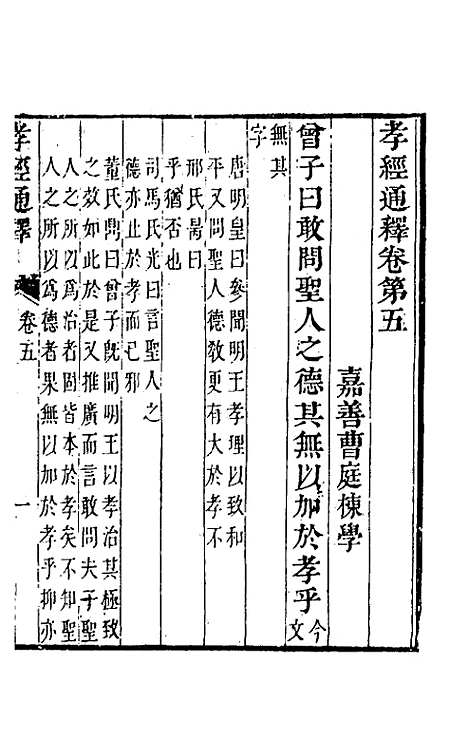 孝經通釋卷第五
嘉善曹庭棟學
曾子曰敢問聖人之德其無以加於孝乎今文
無其
字
唐明皇曰參聞明王孝理以致和
平又問聖人德教更有大於孝不
邢氏昺曰
乎猶否也
司馬氏光曰言聖人之
德亦止於孝而已邪
董氏鼎曰曾子旣聞明王以孝治其極致
之效如此於是又推廣而言敢問夫子聖
人之所以爲治者固皆本於孝矣不知聖
人之所以爲德者果無以加於孝乎抑亦
孝經通釋
卷五
一